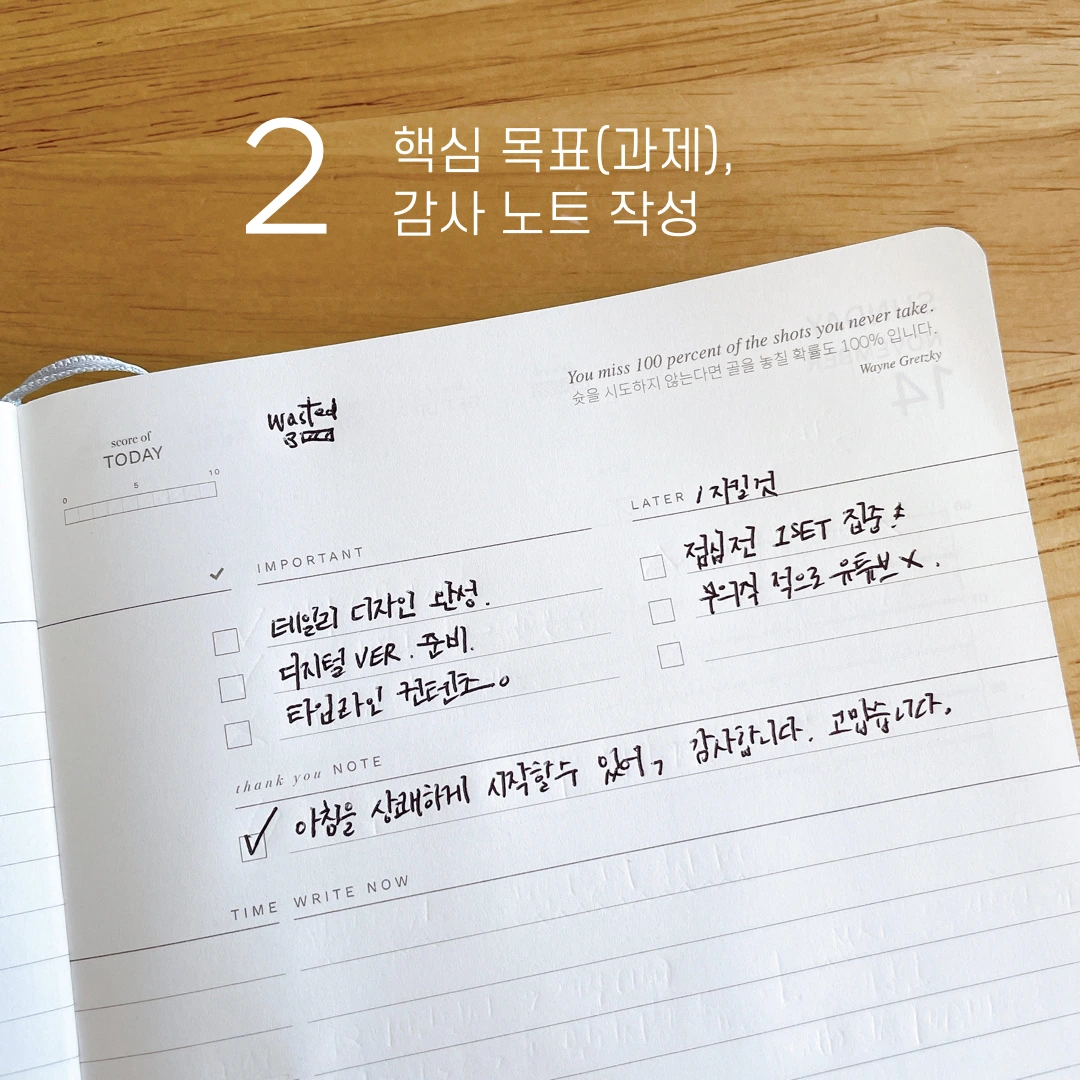 2 핵심 목표(과제),
감사 노트 작성
You miss 100 percent of the shots you never take.
슛을 시도하지 않는다면 골을 놓칠 확률도 100% 입니다.
Wayne Gretzky
wasted
3
score of
TODAY
0 5 10
IMPORTANT
데일리 디자인 완성.
디지털 VER. 준비.
타임라인 컨텐츠.
LATER / 지킬것
점심전 1SET 집중!
무의식 적으로 유튜브 X.
thank you NOTE
아침을 상쾌하게 시작할수 있어, 감사합니다. 고맙습니다.
TIME WRITE NOW
SUNDAY
NOVEMBER
14